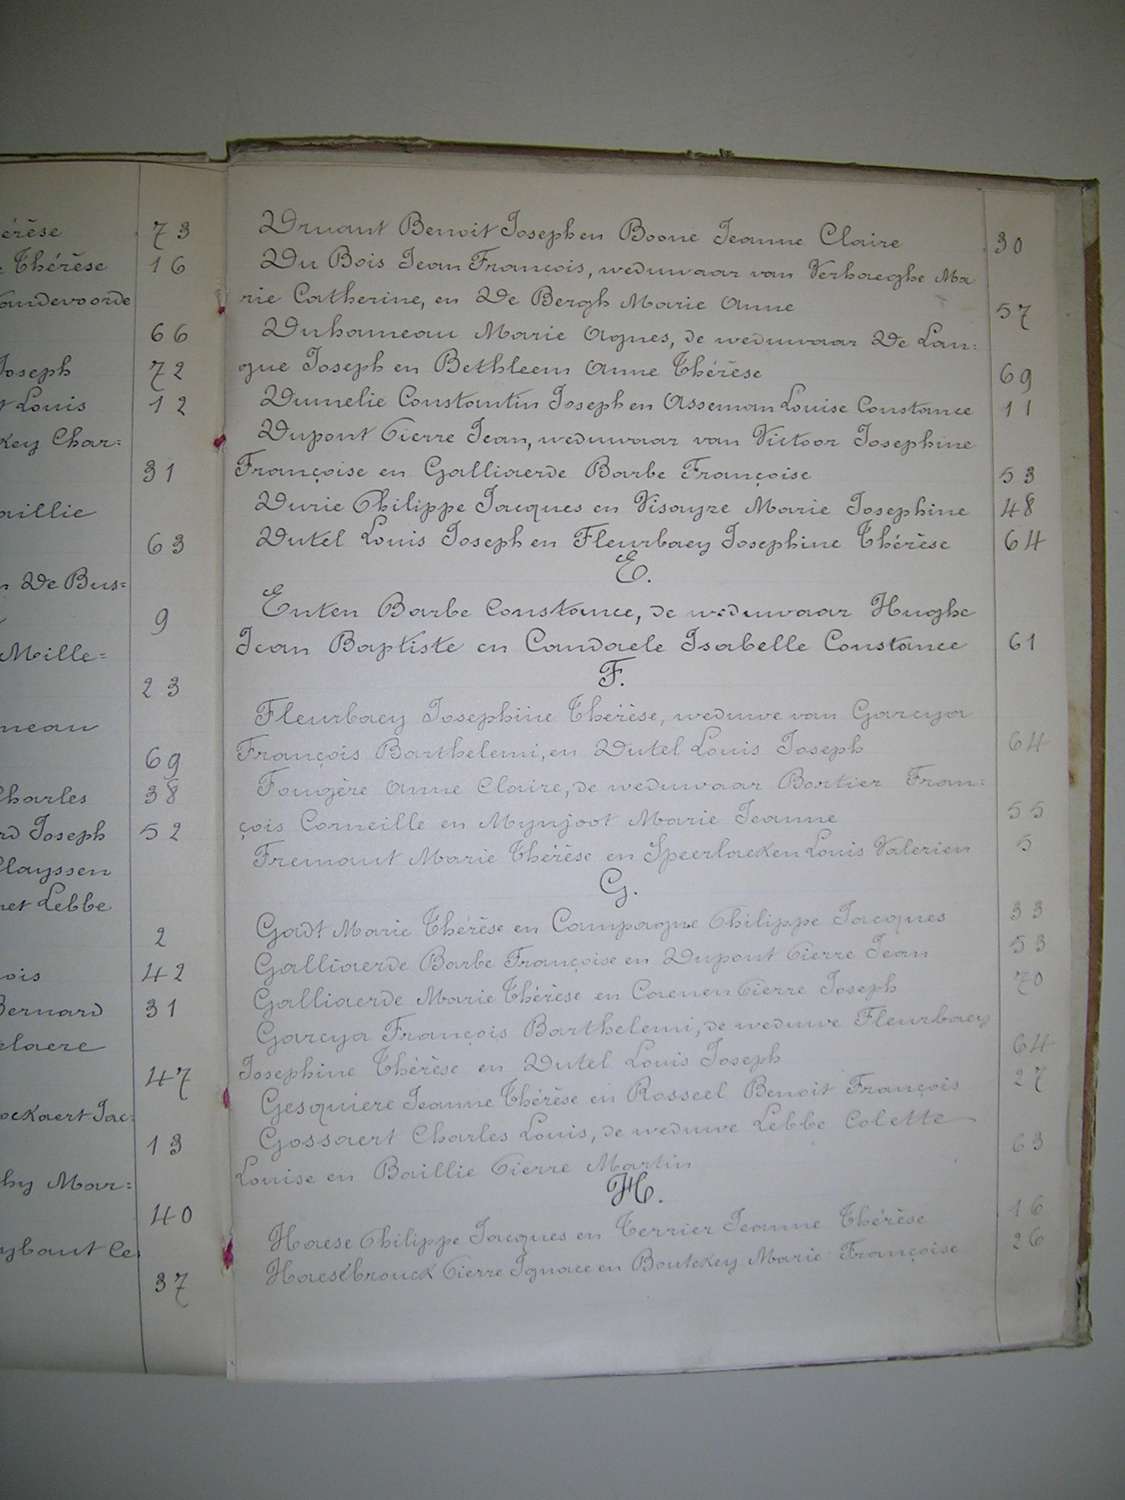 érèse 73
Thérèse 16
andevoorde
66
Joseph 72
Louis 12
key Char=
31
aillie
63
De Bus=
9
Mille=
23
neau
69
Charles 38
rd Joseph 52
Clayssen
met Lebbe
2
ois 42
Bernard 31
elaere
47
ockaert Jac=
13
hy Mar=
40
ybaut Ce
37
Druant Benoit Joseph en Boone Jeanne Claire 30
Du Bois Jean François, weduwaar van Verhaeghe Ma
rie Catherine, en De Bergh Marie Anne 57
Duhameau Marie Agnes, de weduwaar De Lan=
gue Joseph en Bethleem Anne Thérèse 69
Dumelie Constantin Joseph en Asseman Louise Constance 11
Dupont Pierre Jean, weduwaar van Victoor Josephine
Françoise en Galliaerde Barbe Françoise 53
Durie Philippe Jacques en Visayze Marie Josephine 48
Dutel Louis Joseph en Fleurbaey Josephine Thérèse 64
E.
Enten Barbe Constance, de weduwaar Hughe
Jean Baptiste en Candaele Isabelle Constance 61
F.
Fleurbaey Josephine Thérèse, weduwe van Garcya
François Barthelemi, en Dutel Louis Joseph 64
Fougère Anne Claire, de weduwaar Bortier Fran=
çois Corneille en Mynjoot Marie Jeanne 55
Fremaut Marie Thérèse en Speerlaeken Louis Valerien 5
G.
Gadt Marie Thérèse en Campagne Philippe Jacques 33
Galliaerde Barbe Françoise en Dupont Pierre Jean 53
Galliaerde Marie Thérèse en Coenen Pierre Joseph 70
Garcya François Barthelemi, de weduwe Fleurbaey
Josephine Thérèse en Dutel Louis Joseph 64
Gesquiere Jeanne Thérèse en Rosseel Benoit François 27
Gossaert Charles Louis, de weduwe Lebbe Colette
Louise en Baillie Pierre Martin 63
H.
Haese Philippe Jacques en Terrier Jeanne Thérèse 16
Haesebrouck Pierre Ignace en Boutekey Marie Françoise 26